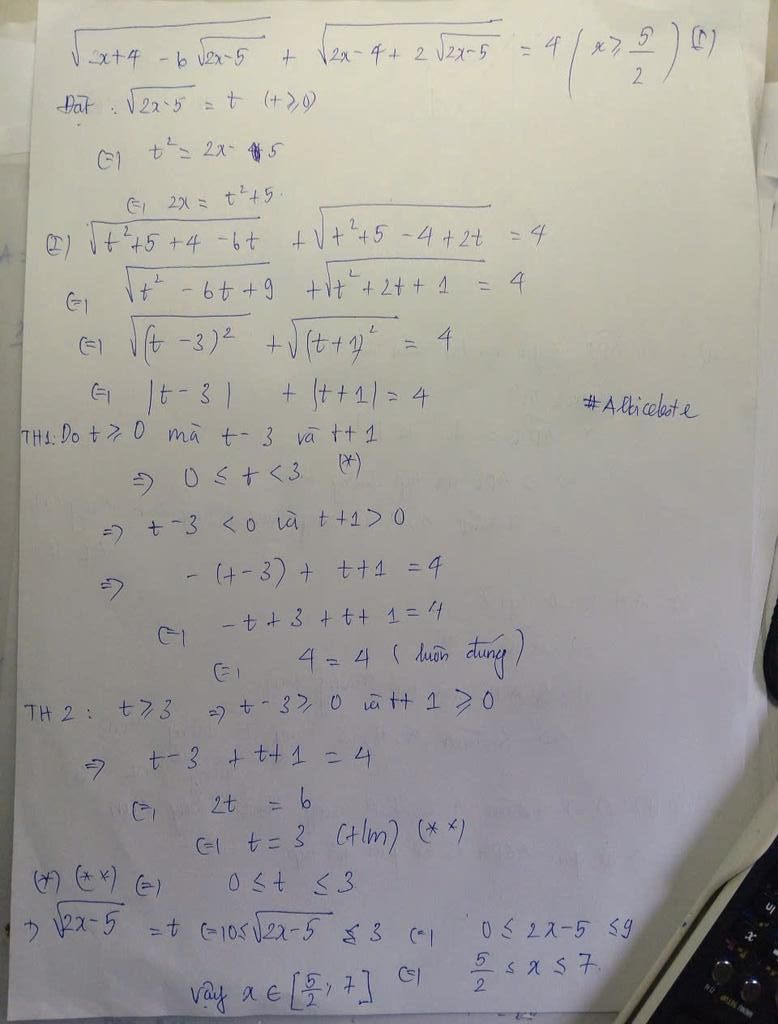 √(2x+4 - 6√(2x-5)) + √(2x-4+2√(2x-5)) = 4 (x ≥ 5/2) (I)
Đặt : √(2x-5) = t (t ≥ 0)
⇔ t² = 2x - 5
⇔ 2x = t² + 5.
(I) √(t²+5+4-6t) + √(t²+5-4+2t) = 4
⇔ √(t² - 6t + 9) + √(t² + 2t + 1) = 4
⇔ √((t-3)²) + √((t+1)²) = 4
⇔ |t-3| + |t+1| = 4
#Albiceleste
TH1: Do t ≥ 0 mà t-3 và t+1
⇒ 0 ≤ t < 3 (*)
⇒ t-3 < 0 và t+1 > 0
⇒ -(t-3) + t+1 = 4
⇔ -t+3+t+1 = 4
⇔ 4 = 4 (luôn đúng)
TH2: t ≥ 3 ⇒ t-3 ≥ 0 và t+1 ≥ 0
⇒ t-3 + t+1 = 4
⇔ 2t = 6
⇔ t = 3 (t/m) (**)
(*) (**) ⇔ 0 ≤ t ≤ 3
⇒ √(2x-5) = t ⇔ 0 ≤ √(2x-5) ≤ 3 ⇔ 0 ≤ 2x-5 ≤ 9
⇔ 5/2 ≤ x ≤ 7.
Vậy x ∈ [5/2, 7]